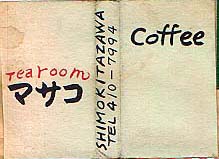 Tearoom
マサコ
SHIMOKITAZAWA
TEL 410-7994
Coffee